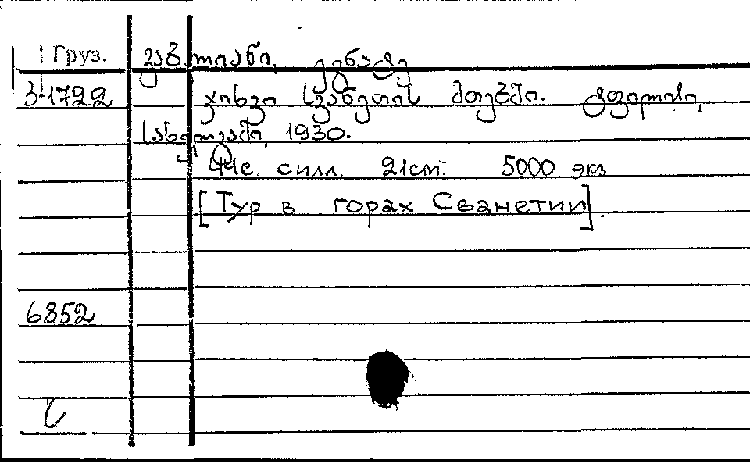 Груз. გაბლიანი, ეგნატე
3-1722 ჯიხვი სვანეთის მთებში. ტფილისი,
სახელგამი, 1930.
44с. с илл. 21см. 5000 экз
[Тур в горах Сванетии].
6852